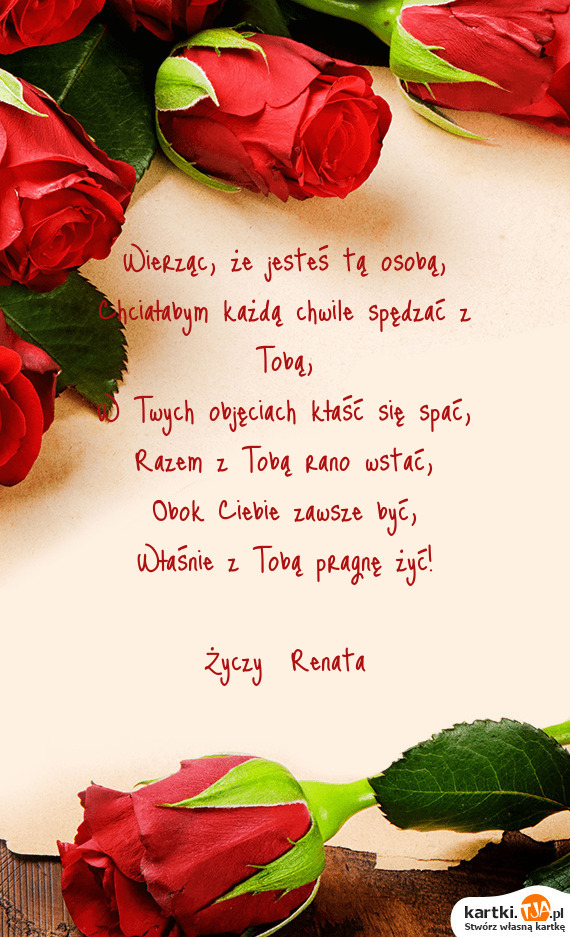 Wierząc, że jesteś tą osobą,
Chciałabym każdą chwile spędzać z
Tobą,
W Twych objęciach kłaść się spać,
Razem z Tobą rano wstać,
Obok Ciebie zawsze być,
Właśnie z Tobą pragnę żyć!
Życzy Renata
kartki.TJA.pl
Stwórz własną kartkę